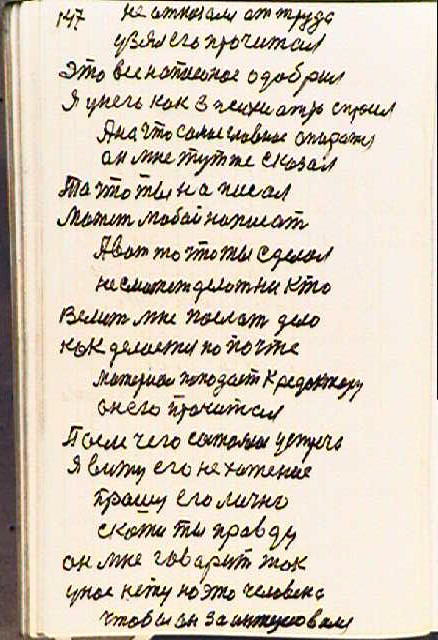 147 не отказал от труда
узял его прочитал
Это все написоное одобрил
Я у него как З психиатр спросил
А на что самое главное
он мне тут же сказал
Та что ты на писал
Может любой написат
А вот то что ты сделал
не сможет делат ни кто
Велит мне послат дело
как делается по почте
Материал поподает к редактору
он его прочитал
После чего состоялас устреча
Я вижу его не хотение
прашу его лично
скажи ты правду
он мне говарит так
у нас нету но это человека
что бы он за интересовал